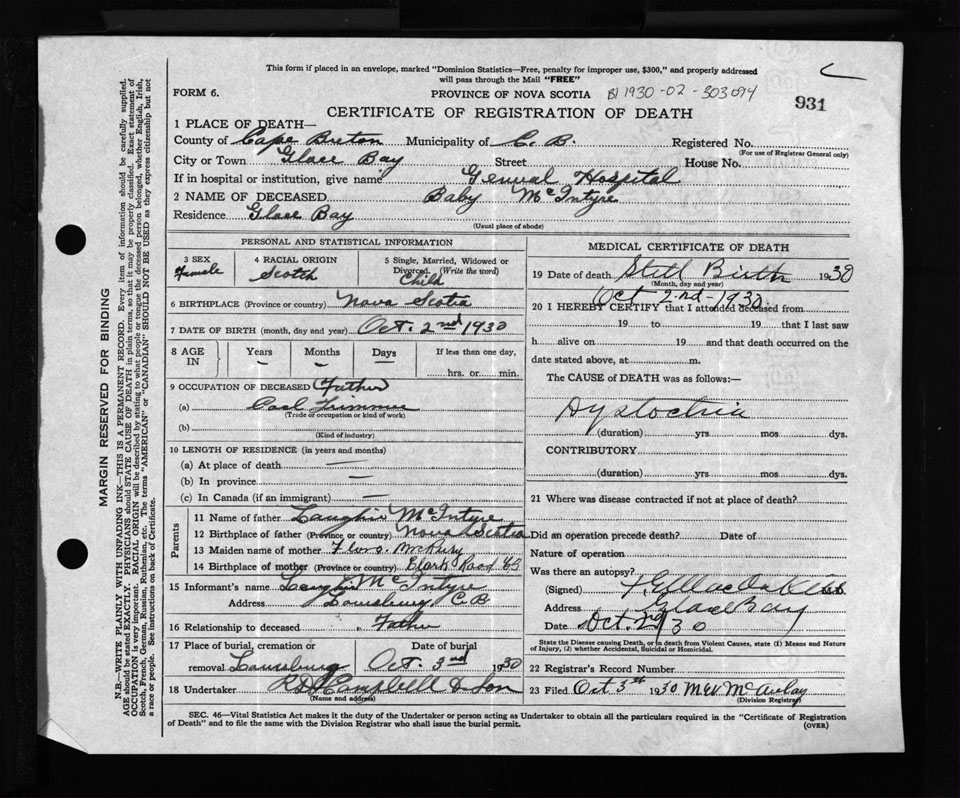 This form if placed in an envelope, marked "Dominion Statistics—Free, penalty for improper use, $300," and properly addressed
will pass through the Mail "FREE"
FORM 6. PROVINCE OF NOVA SCOTIA 1930-02-303094
931
CERTIFICATE OF REGISTRATION OF DEATH
1 PLACE OF DEATH—
County of Cape Breton Municipality of C. B. Registered No.
(For use of Registrar General only)
City or Town Glace Bay Street House No.
If in hospital or institution, give name General Hospital
2 NAME OF DECEASED Baby McIntyre
Residence Glace Bay
(Usual place of abode)
PERSONAL AND STATISTICAL INFORMATION
3 SEX 4 RACIAL ORIGIN 5 Single, Married, Widowed or
Divorced. (Write the word)
Female Scotch Child
6 BIRTHPLACE (Province or country) Nova Scotia
7 DATE OF BIRTH (month, day and year) Oct. 2nd 1930
8 AGE IN Years Months Days If less than one day,
— — — hrs. or min.
9 OCCUPATION OF DECEASED Father
(a) Coal Trimmer
(Trade or occupation or kind of work)
(b)
(Kind of industry)
10 LENGTH OF RESIDENCE (in years and months)
(a) At place of death —
(b) In province —
(c) In Canada (if an immigrant) —
Parents
11 Name of father McIntyre
12 Birthplace of father (Province or country) Nova Scotia
13 Maiden name of mother
14 Birthplace of mother (Province or country) Road CB
15 Informant's name McIntyre
Address Louisburg C B
16 Relationship to deceased Father
17 Place of burial, cremation or Date of burial
removal Louisburg Oct. 3rd 1930
18 Undertaker & Son
(Name and address)
MEDICAL CERTIFICATE OF DEATH
19 Date of death Still Birth 1930
(Month, day and year)
Oct 2nd - 1930.
20 I HEREBY CERTIFY that I attended deceased from
19 to 19 that I last saw
h alive on 19 and that death occurred on the
date stated above, at m.
The CAUSE of DEATH was as follows:
Dystochia
(duration) yrs. mos. dys.
CONTRIBUTORY
(duration) yrs. mos. dys.
21 Where was disease contracted if not at place of death?
Did an operation precede death? Date of
Nature of operation
Was there an autopsy?
(Signed)
Address Glace Bay
Date Oct. 2/30
State the Disease causing Death, or in death from Violent Causes, state (1) Means and Nature
of Injury, (2) whether Accidental, Suicidal or Homicidal.
22 Registrar's Record Number
23 Filed Oct 3rd 1930 McAulay
(Division Registrar)
SEC. 46—Vital Statistics Act makes it the duty of the Undertaker or person acting as Undertaker to obtain all the particulars required in the "Certificate of Registration
of Death" and to file the same with the Division Registrar who shall issue the burial permit.
(OVER)
MARGIN RESERVED FOR BINDING
N.B.—WRITE PLAINLY WITH UNFADING INK—THIS IS A PERMANENT RECORD. Every item of information should be carefully supplied.
AGE should be stated EXACTLY. PHYSICIANS should STATE CAUSE OF DEATH in plain terms, so that it may be properly classified. Exact statement of
OCCUPATION is very important. RACIAL ORIGIN will be described by stating to what people or tongue the deceased person belonged, whether English, Irish,
Scotch, French, German, Russian, Ruthenian, etc. The terms "AMERICAN" or "CANADIAN" SHOULD NOT BE USED as they express citizenship but not
a race or people. See instructions on back of Certificate.